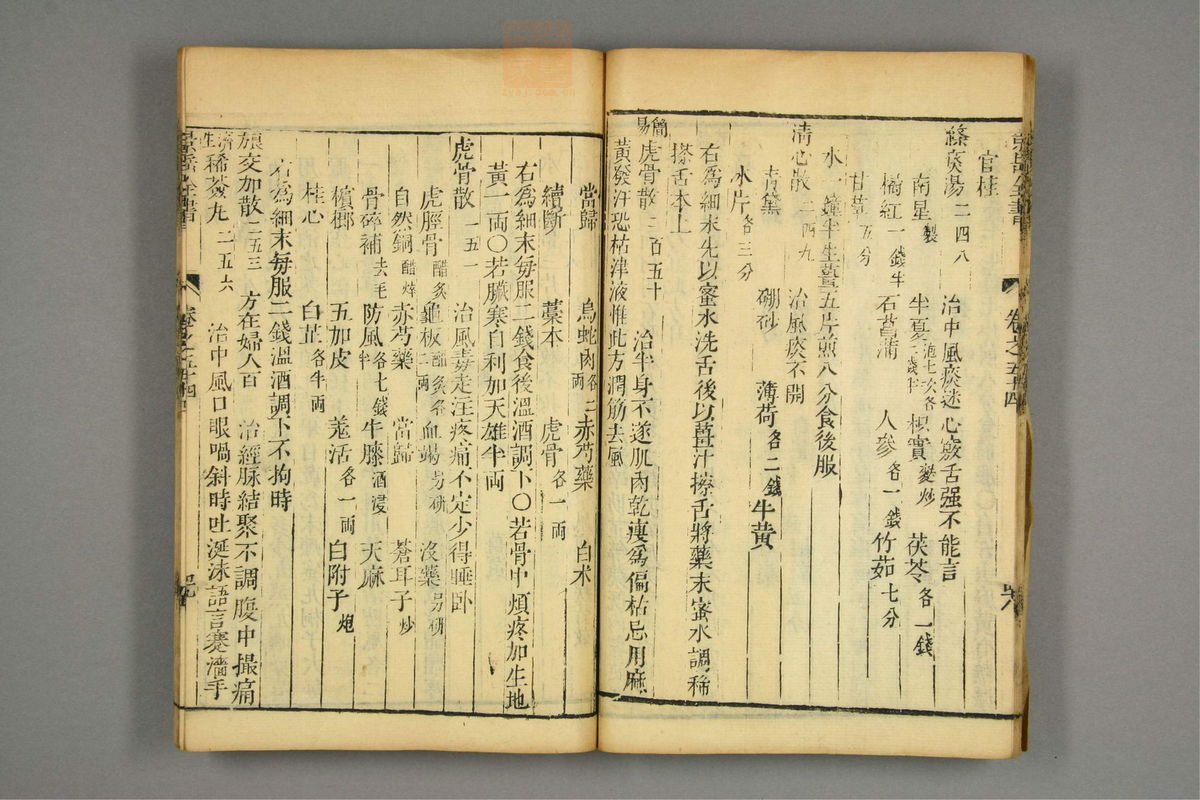 官桂
滌痰湯 二四八 治中風痰迷心竅舌强不能言
南星製 半夏泡七次各二錢半 枳實麩炒 茯苓各一錢
橘紅一錢半 石菖蒲 人參各一錢 竹茹七分
甘草五分
水一鐘半生薑五片煎八分食後服
清心散 二四九 治風痰不開
青黛 硼砂 薄荷各二錢 牛黄
氷片各三分
右爲細末先以蜜水洗舌後以薑汁擦舌將藥末蜜水調稀
搽舌本上
簡易虎骨散 二百五十 治半身不遂肌肉乾瘦爲偏枯忌用麻
黄發汗恐枯津液惟此方潤筋去風
當歸 烏蛇肉各二兩 赤芍藥 白术
續斷 藁本 虎骨各一兩
右爲細末毎服二錢食後溫酒調下○若骨中煩疼加生地
黃一兩○若臟寒自利加天雄半兩
虎骨散 二五一 治風毒走注疼痛不定少得睡卧
虎脛骨醋炙 龜板醋炙各二兩 血竭另研 没藥另研
自然銅醋焠 赤芍藥 當歸 蒼耳子炒
骨碎補去毛 防風各七錢半 牛膝酒浸 天麻
檳榔 五加皮 羗活各一兩 白附子炮
桂心 白芷各半兩
右爲細末毎服二錢溫酒調下不拘時
交加散 二五三 方在婦人百 治經脉結聚不調腹中撮痛
濟生稀薟丸 二五六 治中風口眼喎斜時吐涎沫語言蹇濇手
景岳全書
卷之五十四
景岳全書
卷之五十四